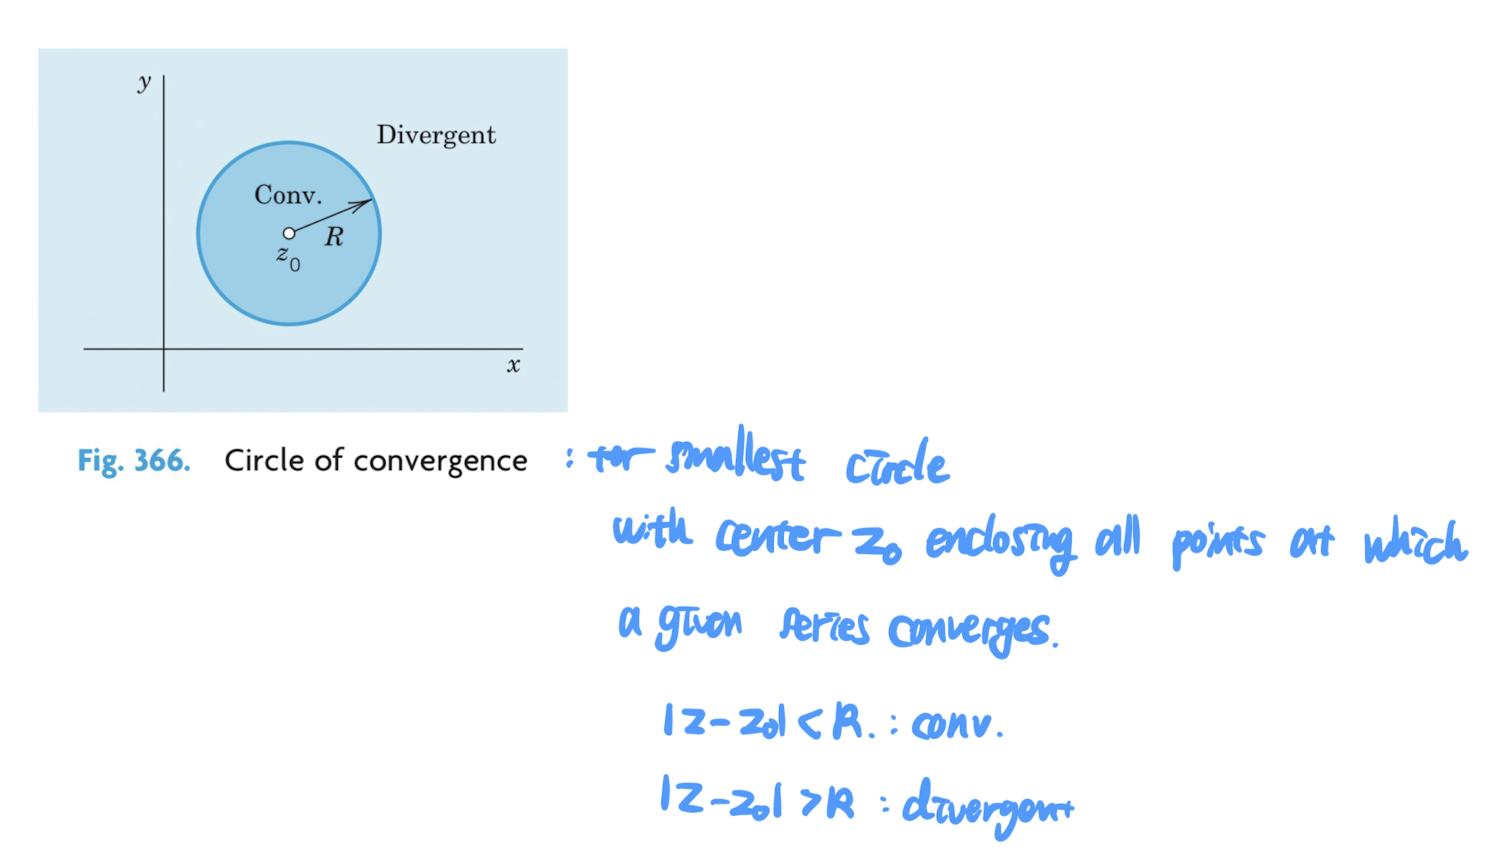 y
Divergent
Conv.
R
z0
x
Fig. 366. Circle of convergence : for smallest circle
with center z0 enclosing all points at which
a given series converges.
|z-z0| < R. : conv.
|z-z0| > R : divergent